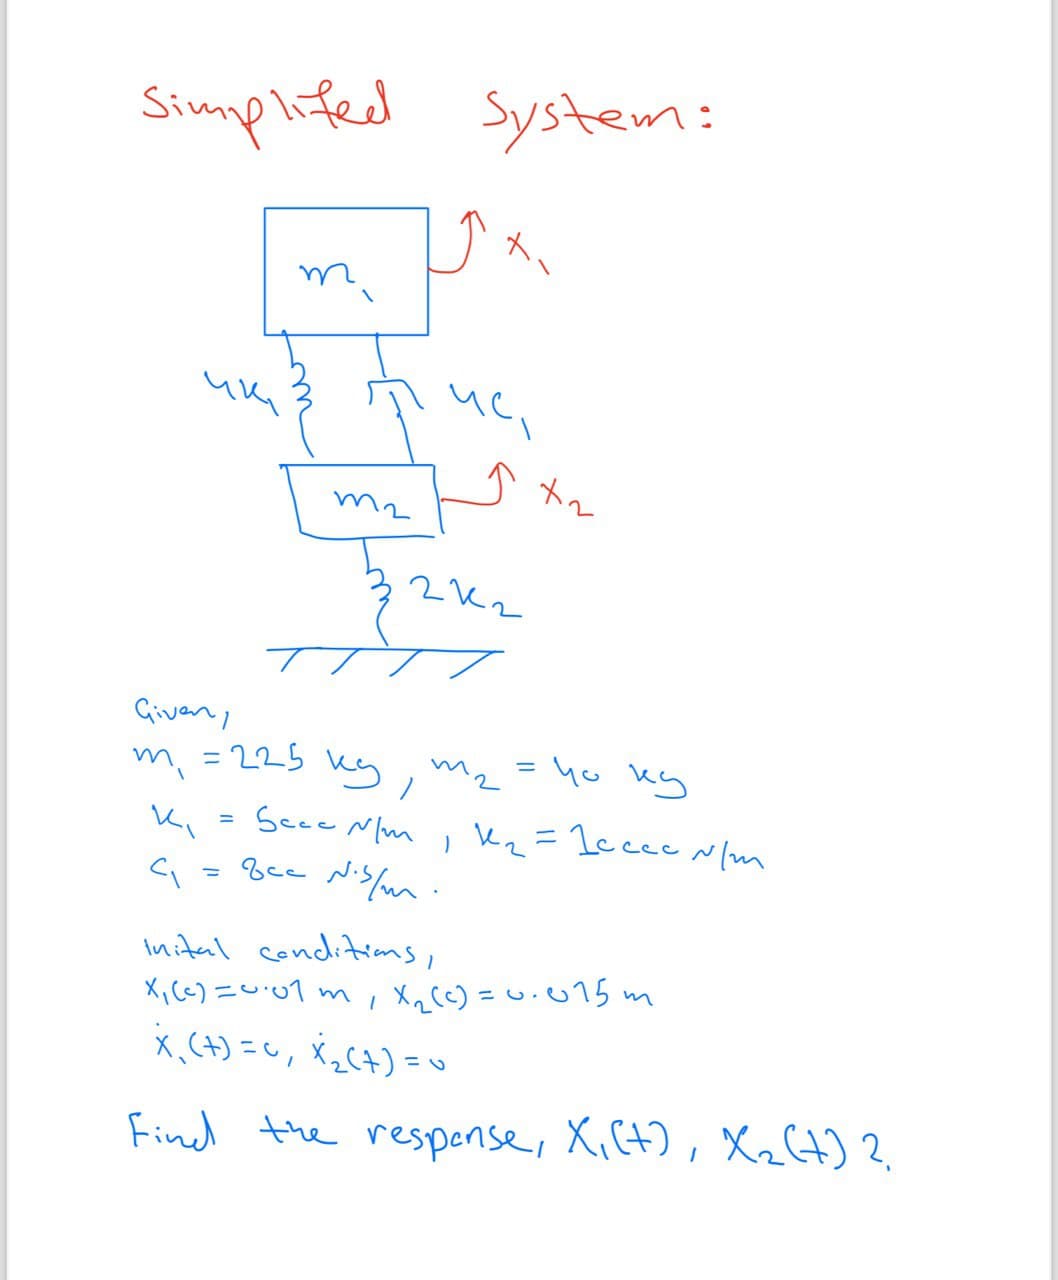 Simplifed System:
m₁
x₁
4k₁
4c₁
m₂
x₂
2k₂
Given,
m₁ = 225 kg, m₂ = 40 kg
k₁ = 5000 N/m, k₂ = 10000 N/m
c₁ = 800 N.s/m.
Inital conditions,
x₁(0) = 0.01 m, x₂(0) = 0.015 m
ẋ₁(t) = 0, ẋ₂(t) = 0
Find the response, X₁(t), X₂(t)?